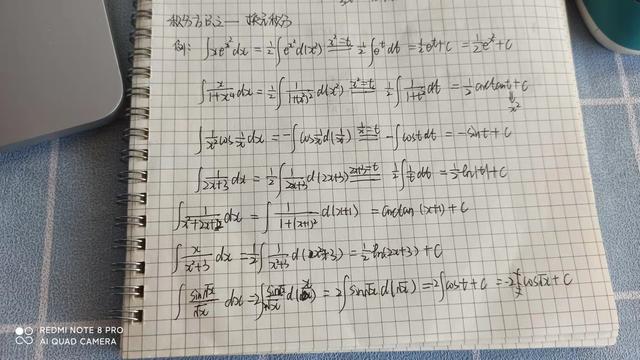 积分方法之一——换元积分
例: ∫xe^{x²}dx = 1/2∫e^{x²}d(x²) =(x²=t)= 1/2∫e^t dt = 1/2e^t+C = 1/2e^{x²}+C
∫x/(1+x⁴)dx = 1/2∫1/(1+(x²)²)d(x²) =(x²=t)= 1/2∫1/(1+t²)dt = 1/2arctant+C
x²
∫1/x²cos1/xdx = -∫cos1/xd(1/x) =(1/x=t)= -∫costdt = -sint+C
∫1/(2x+3)dx = 1/2∫1/(2x+3)d(2x+3) =(2x+3=t)= 1/2∫1/t dt = 1/2ln|t|+C
∫1/(x²+2x+2)dx = ∫1/(1+(x+1)²)d(x+1) = arctan(x+1)+C
∫x/(x²+3)dx = 1/2∫1/(x²+3)d(x²+3) = 1/2ln(2x+3)+C
∫sin√x/√x dx = 2∫sin√x/√x = 2∫sin√x d(√x) = -2cost+C = -2cos√x+C
REDMI NOTE 8 PRO
AI QUAD CAMERA